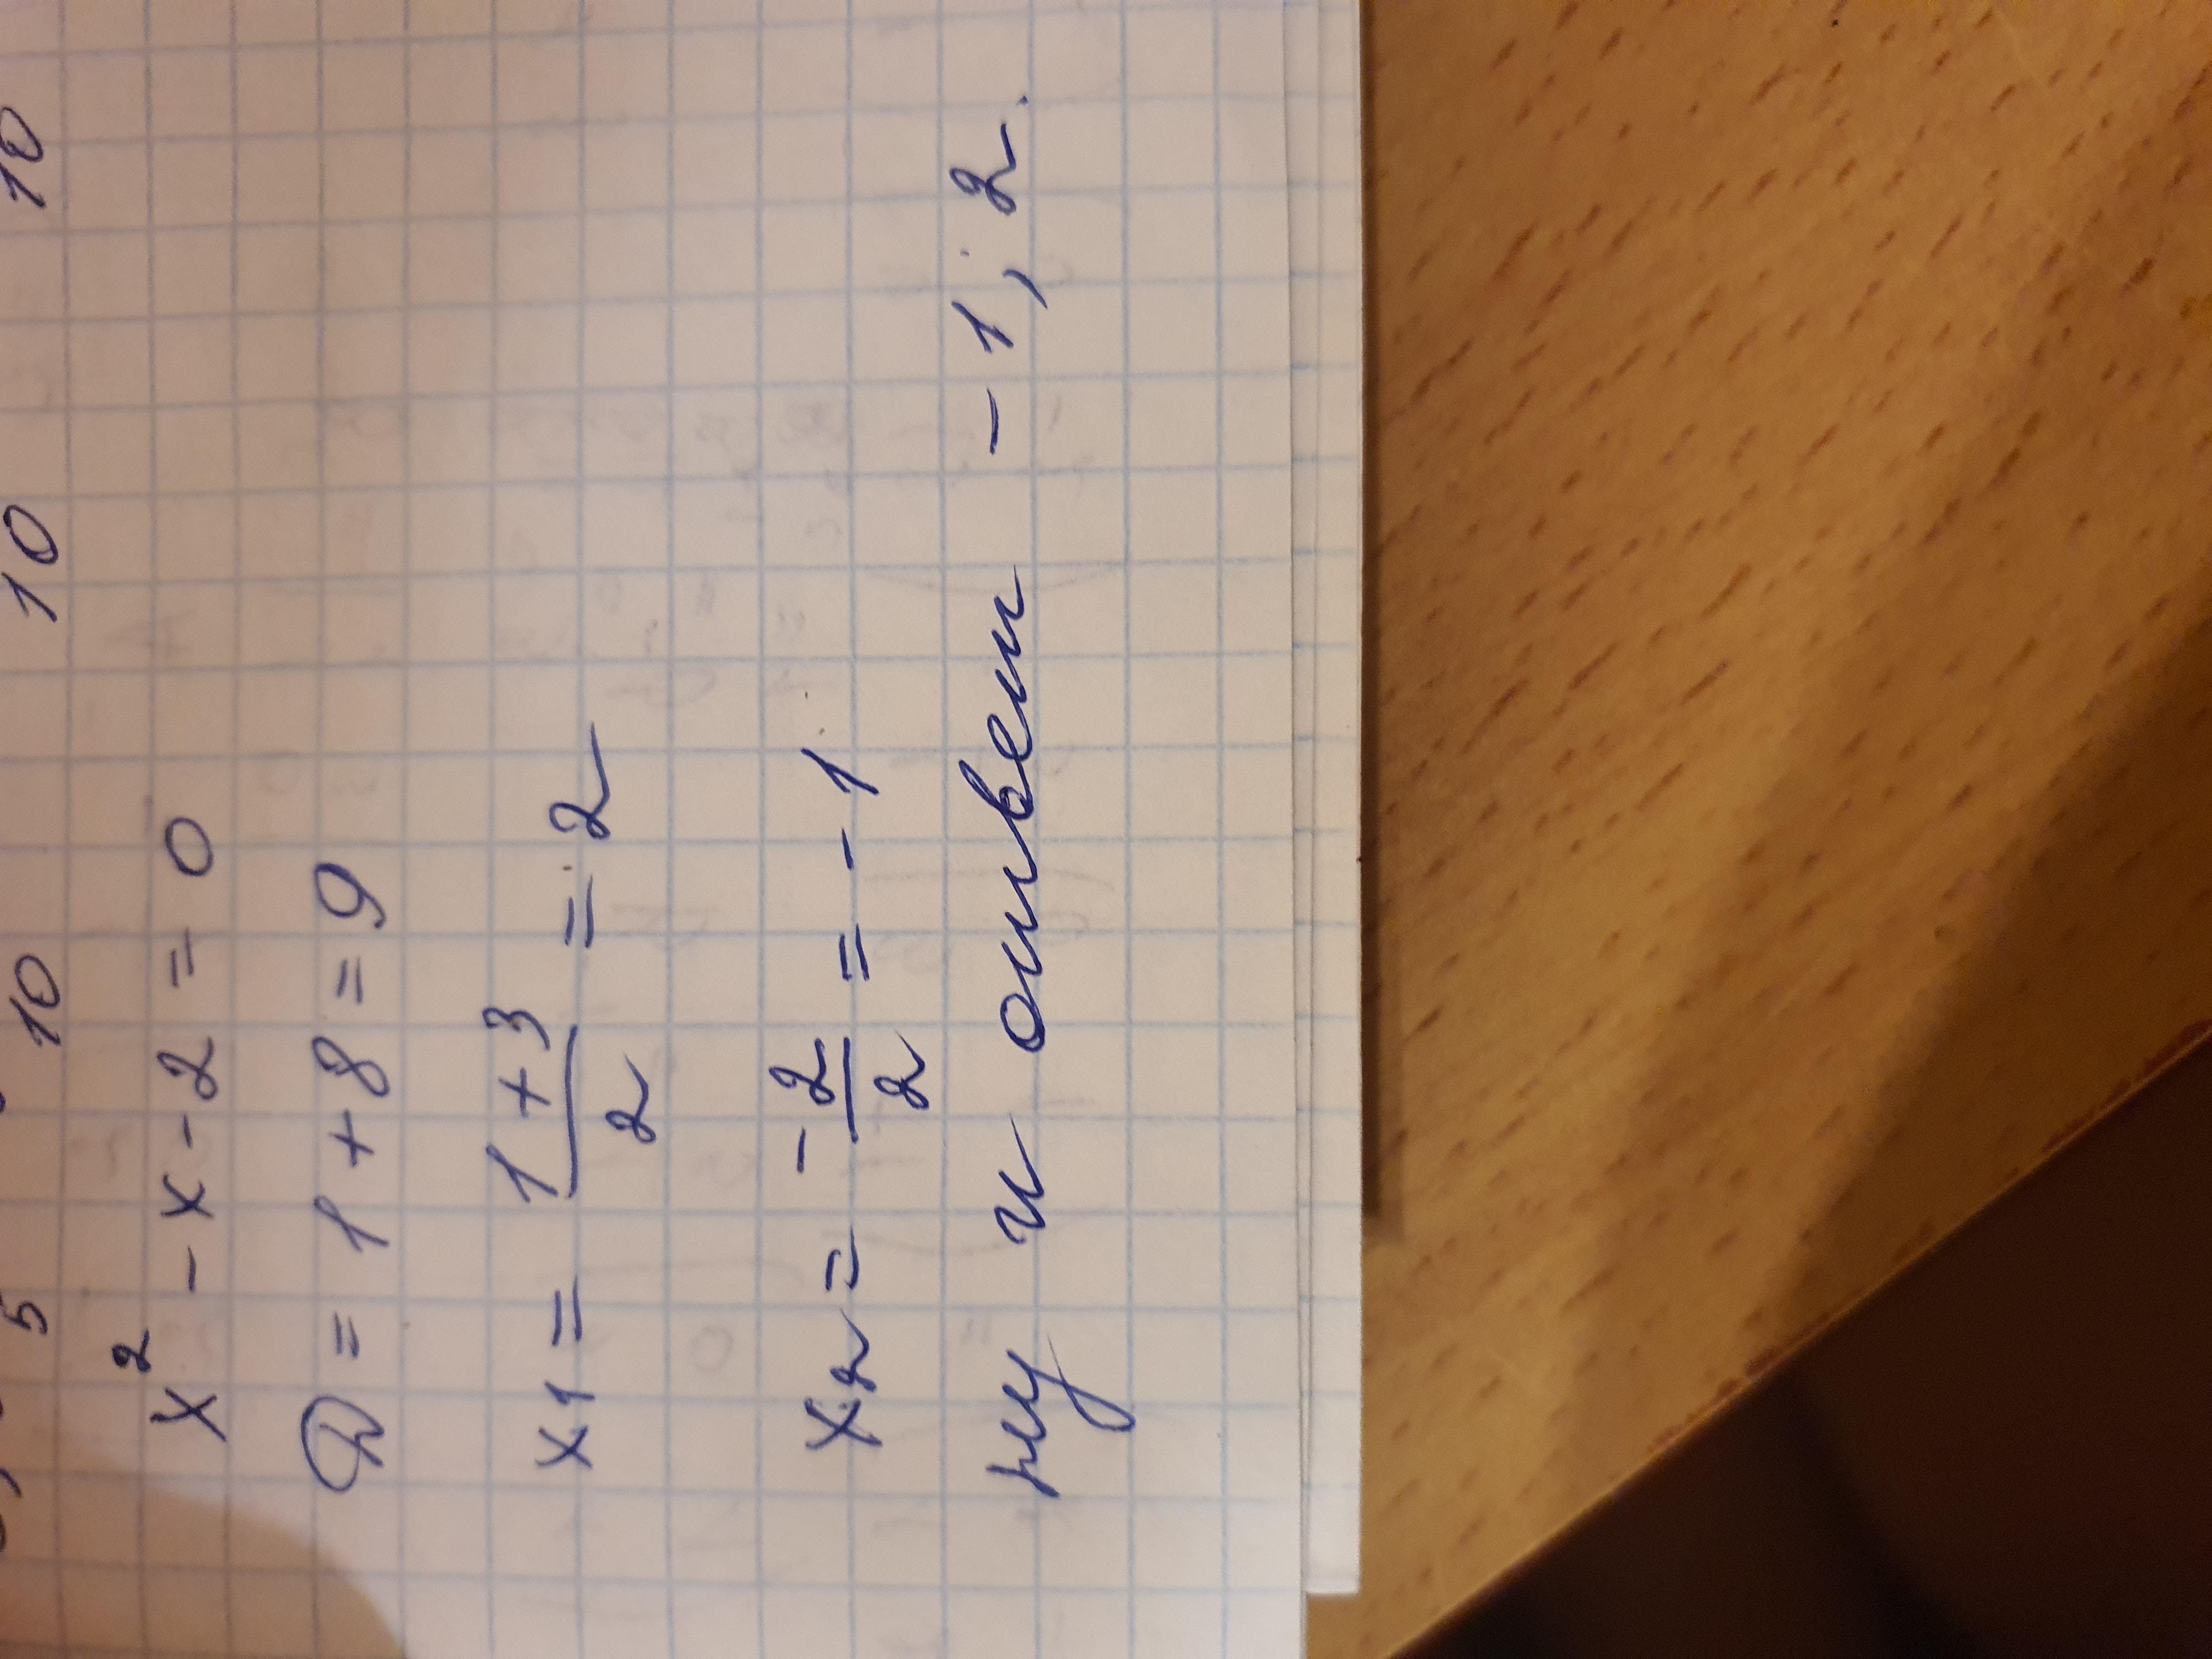 5 10 10 10
x² - x - 2 = 0
D = 1 + 8 = 9
x1 = 1 + 3 / 2 = 2
x2 = -2 / 2 = -1
ну и ответ -1; 2.